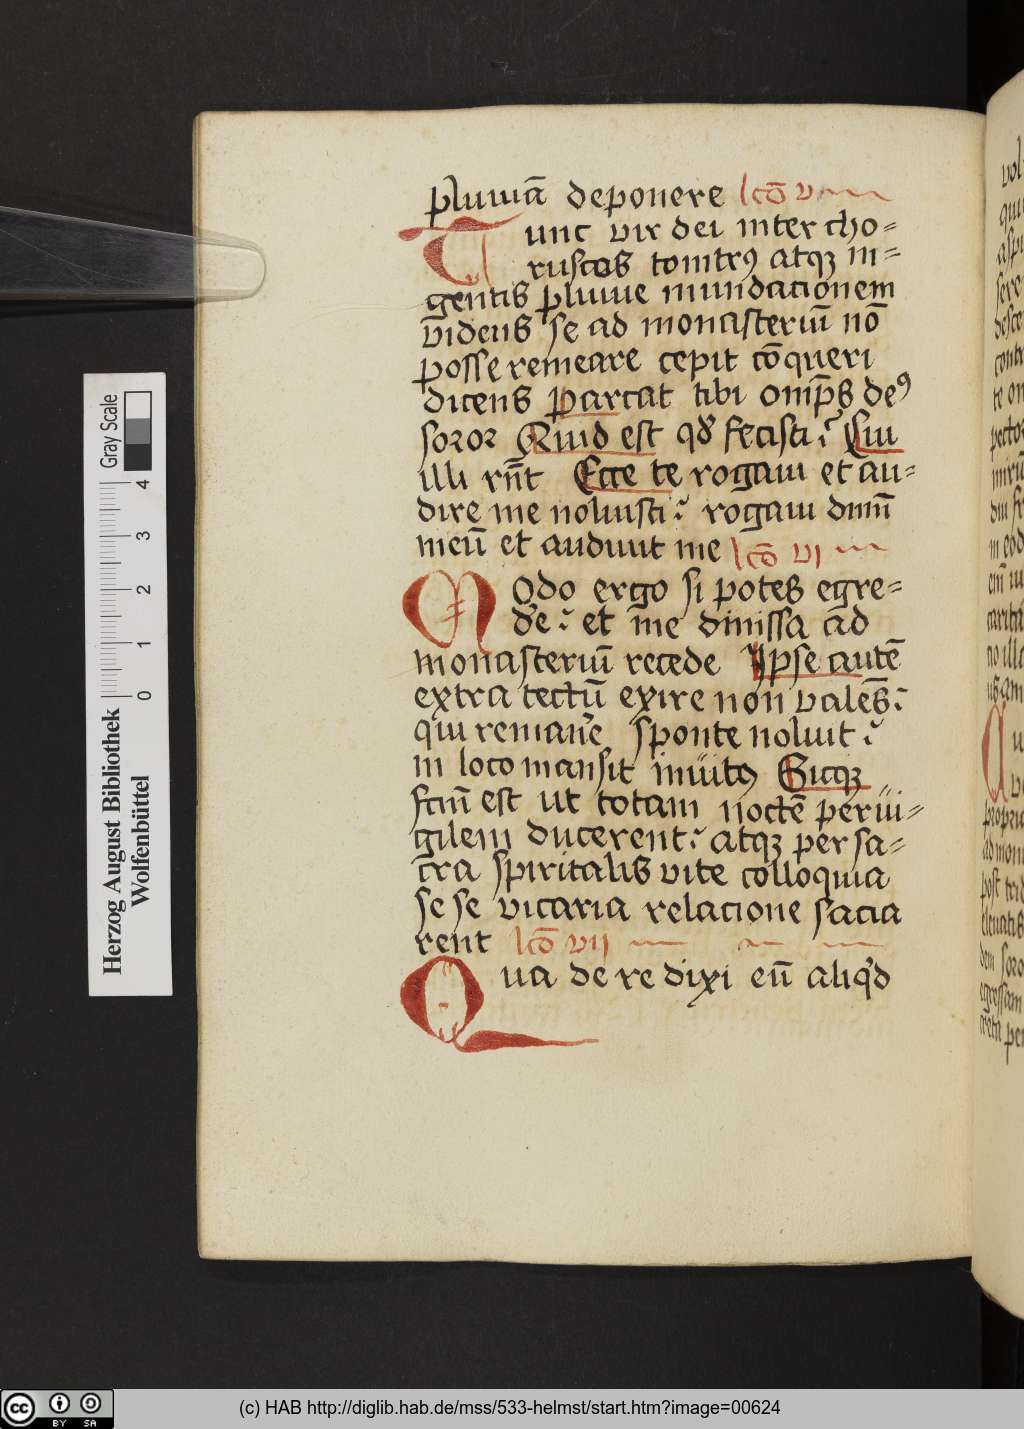 pluuiā deponere lcō v
Tunc vir dei inter cho=
ruscos tonitrꝰ atqꝫ in=
gentis pluuie inundacionem
videns se ad monasteriū nō
posse remeare cepit cōqueri
dicens Parcat tibi omp̄s deꝰ
soror Quid est qḋ fecisti? Cui
illi rn̄t Ecce te rogaui et au=
dire me noluisti? rogaui dnm̄
meū et audiuit me lcō vi
Modo ergo si potes egre=
de? et me dimissa ad
monasteriū recede Ipse autē
extra tectū exire non valēs?
qui remane sponte noluit?
in loco mansit inuitꝰ Sicqꝫ
fctm̄ est ut totam noctē perui=
gilem ducerent? atqꝫ per sa=
cra spiritalis vite colloquia
se se vicaria relacione sacia
rent lcō vii
Qua de re dixi eū aliqd
Gray Scale
0 1 2 3 4
Herzog August Bibliothek
Wolfenbüttel
cc BY SA
(c) HAB http://diglib.hab.de/mss/533-helmst/start.htm?image=00624